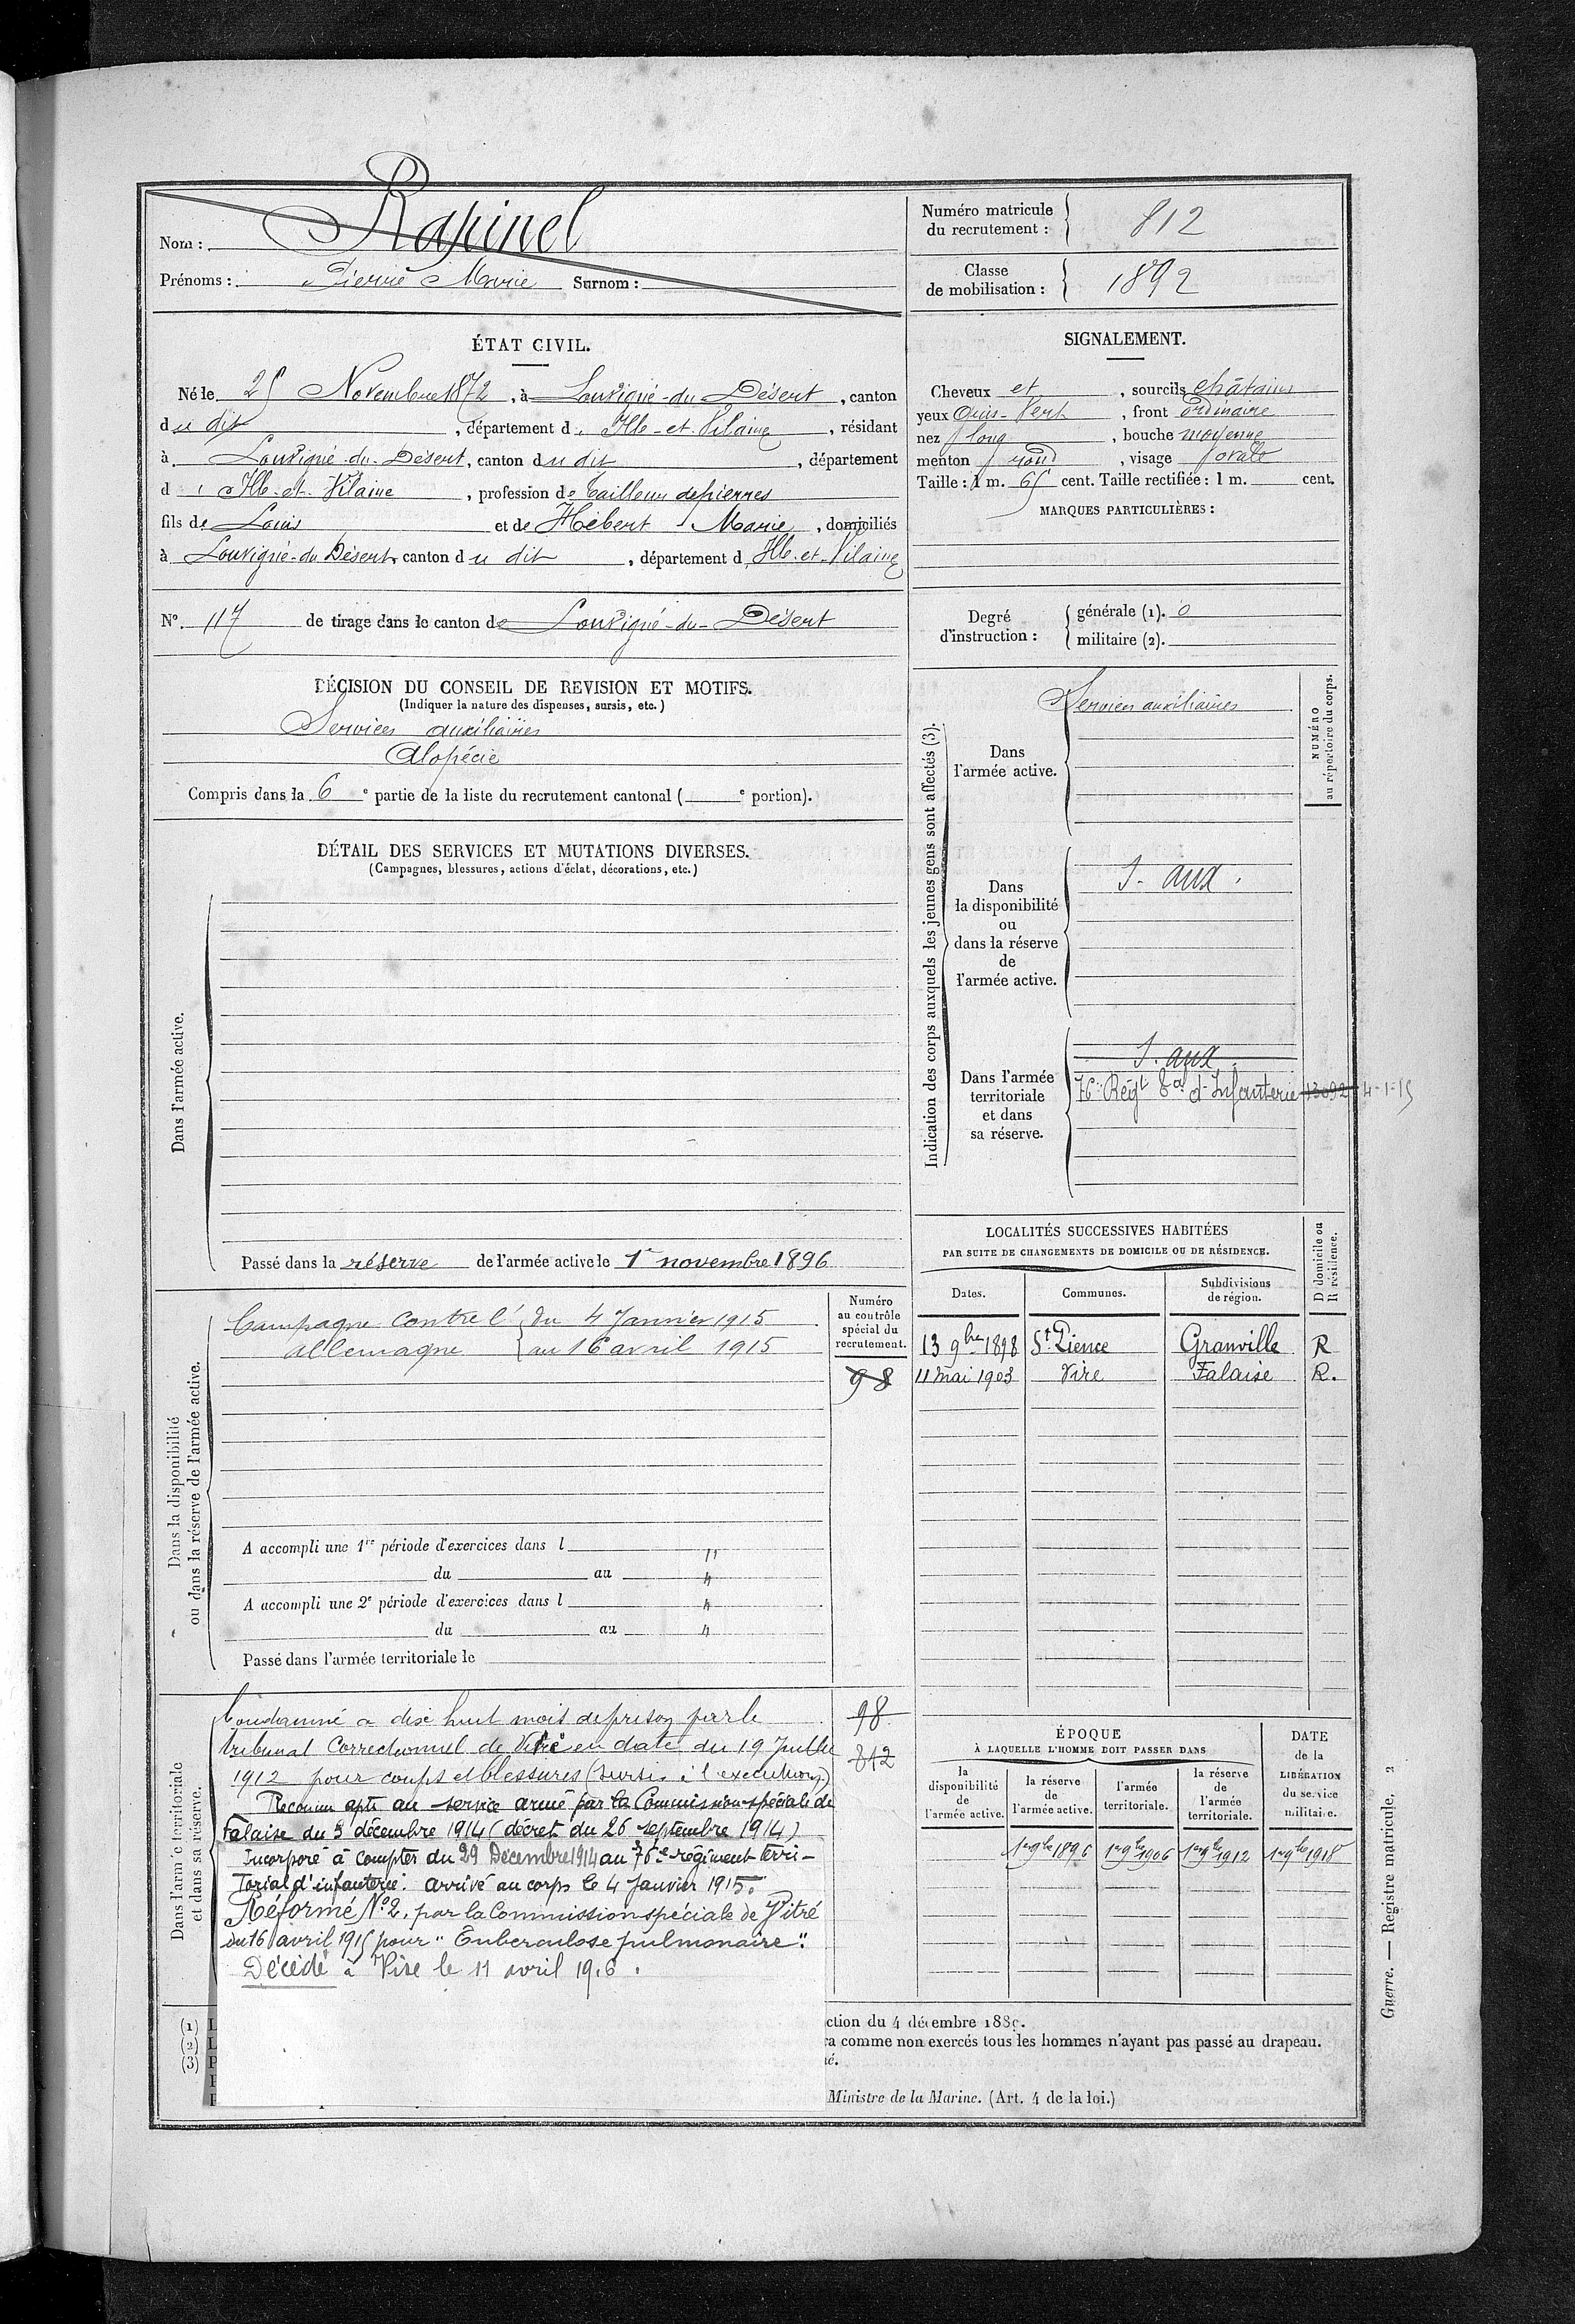 Nom : Rapinel
Prénoms : Pierre Marie Surnom :
Numéro matricule du recrutement : 812
Classe de mobilisation : 1892
ÉTAT CIVIL.
Né le 25 Novembre 1872, à Louvigné-du-Désert, canton
du dit, département d'Ille-et-Vilaine, résidant
à Louvigné-du-Désert, canton du dit, département
d'Ille-et-Vilaine, profession de tailleur de pierres
fils de Louis et de Hébert Marie, domiciliés
à Louvigné-du-Désert, canton du dit, département d'Ille-et-Vilaine
N° 117 de tirage dans le canton de Louvigné-du-Désert
SIGNALEMENT.
Cheveux et, sourcils châtains
yeux Gris-Vert, front ordinaire
nez long, bouche moyenne
menton rond, visage ovale
Taille : 1 m. 65 cent. Taille rectifiée : 1 m. cent.
MARQUES PARTICULIÈRES :
Degré d'instruction :
générale (1). 0
militaire (2).
DÉCISION DU CONSEIL DE REVISION ET MOTIFS.
(Indiquer la nature des dispenses, sursis, etc.)
Services auxiliaires
Alopécie
Compris dans la 6e partie de la liste du recrutement cantonal ( e portion).
DÉTAIL DES SERVICES ET MUTATIONS DIVERSES.
(Campagnes, blessures, actions d'éclat, décorations, etc.)
Dans l'armée active.
Passé dans la réserve de l'armée active le 1er novembre 1896
Indication des corps auxquels les jeunes gens sont affectés (3).
NUMÉRO
au répertoire du corps.
Dans
l'armée active.
Services auxiliaires
Dans
la disponibilité
ou
dans la réserve
de
l'armée active.
S. aux.
Dans l'armée
territoriale
et dans
sa réserve.
S. aux.
76e Régt tal d'Infanterie 13092 4-1-15
Dans la disponibilité
ou dans la réserve de l'armée active.
Campagne contre l' du 4 Janvier 1915
allemagne au 16 avril 1915
Numéro
au contrôle
spécial du
recrutement.
98
A accompli une 1re période d'exercices dans l "
du au "
A accompli une 2e période d'exercices dans l "
du au "
Passé dans l'armée territoriale le
LOCALITÉS SUCCESSIVES HABITÉES
PAR SUITE DE CHANGEMENTS DE DOMICILE OU DE RÉSIDENCE.
Dates. Communes. Subdivisions de région. D domicile ou R résidence.
13 9bre 1898 St Pience Granville R
11 mai 1903 Vire Falaise R.
Dans l'armée territoriale
et dans sa réserve.
Condamné à dix huit mois de prison par le
tribunal Correctionnel de Vire en date du 19 Juillet
1912 pour coups et blessures (sursis à l'exécution)
Reconnu apte au service armé par la Commission spéciale de
Falaise du 3 décembre 1914 (décret du 26 septembre 1914)
Incorporé à compter du 29 Décembre 1914 au 76e régiment terri-
torial d'infanterie. arrivé au corps le 4 Janvier 1915.
Réformé N°2, par la Commission spéciale de Vitré
du 16 avril 1915 pour "Tuberculose pulmonaire".
Décédé à Vire le 11 avril 1916.
98
812
ÉPOQUE
À LAQUELLE L'HOMME DOIT PASSER DANS
la disponibilité de l'armée active.
la réserve de l'armée active.
l'armée territoriale.
la réserve de l'armée territoriale.
DATE de la LIBÉRATION du service militaire.
1er 9bre 1896 1er 9bre 1906 1er 9bre 1912 1er 9bre 1918
(1) L
(2) L
(3) P
ction du 4 décembre 1889.
ra comme non exercés tous les hommes n'ayant pas passé au drapeau.
né.
Ministre de la Marine. (Art. 4 de la loi.)
Guerre. — Registre matricule. 2